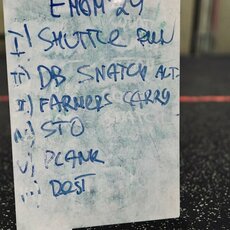 EMOM 24
I) SHUTTLE RUN
II) DB SNATCH ALT.
III) FARMERS CARRY
IV) STO
V) PLANK
VI) REST